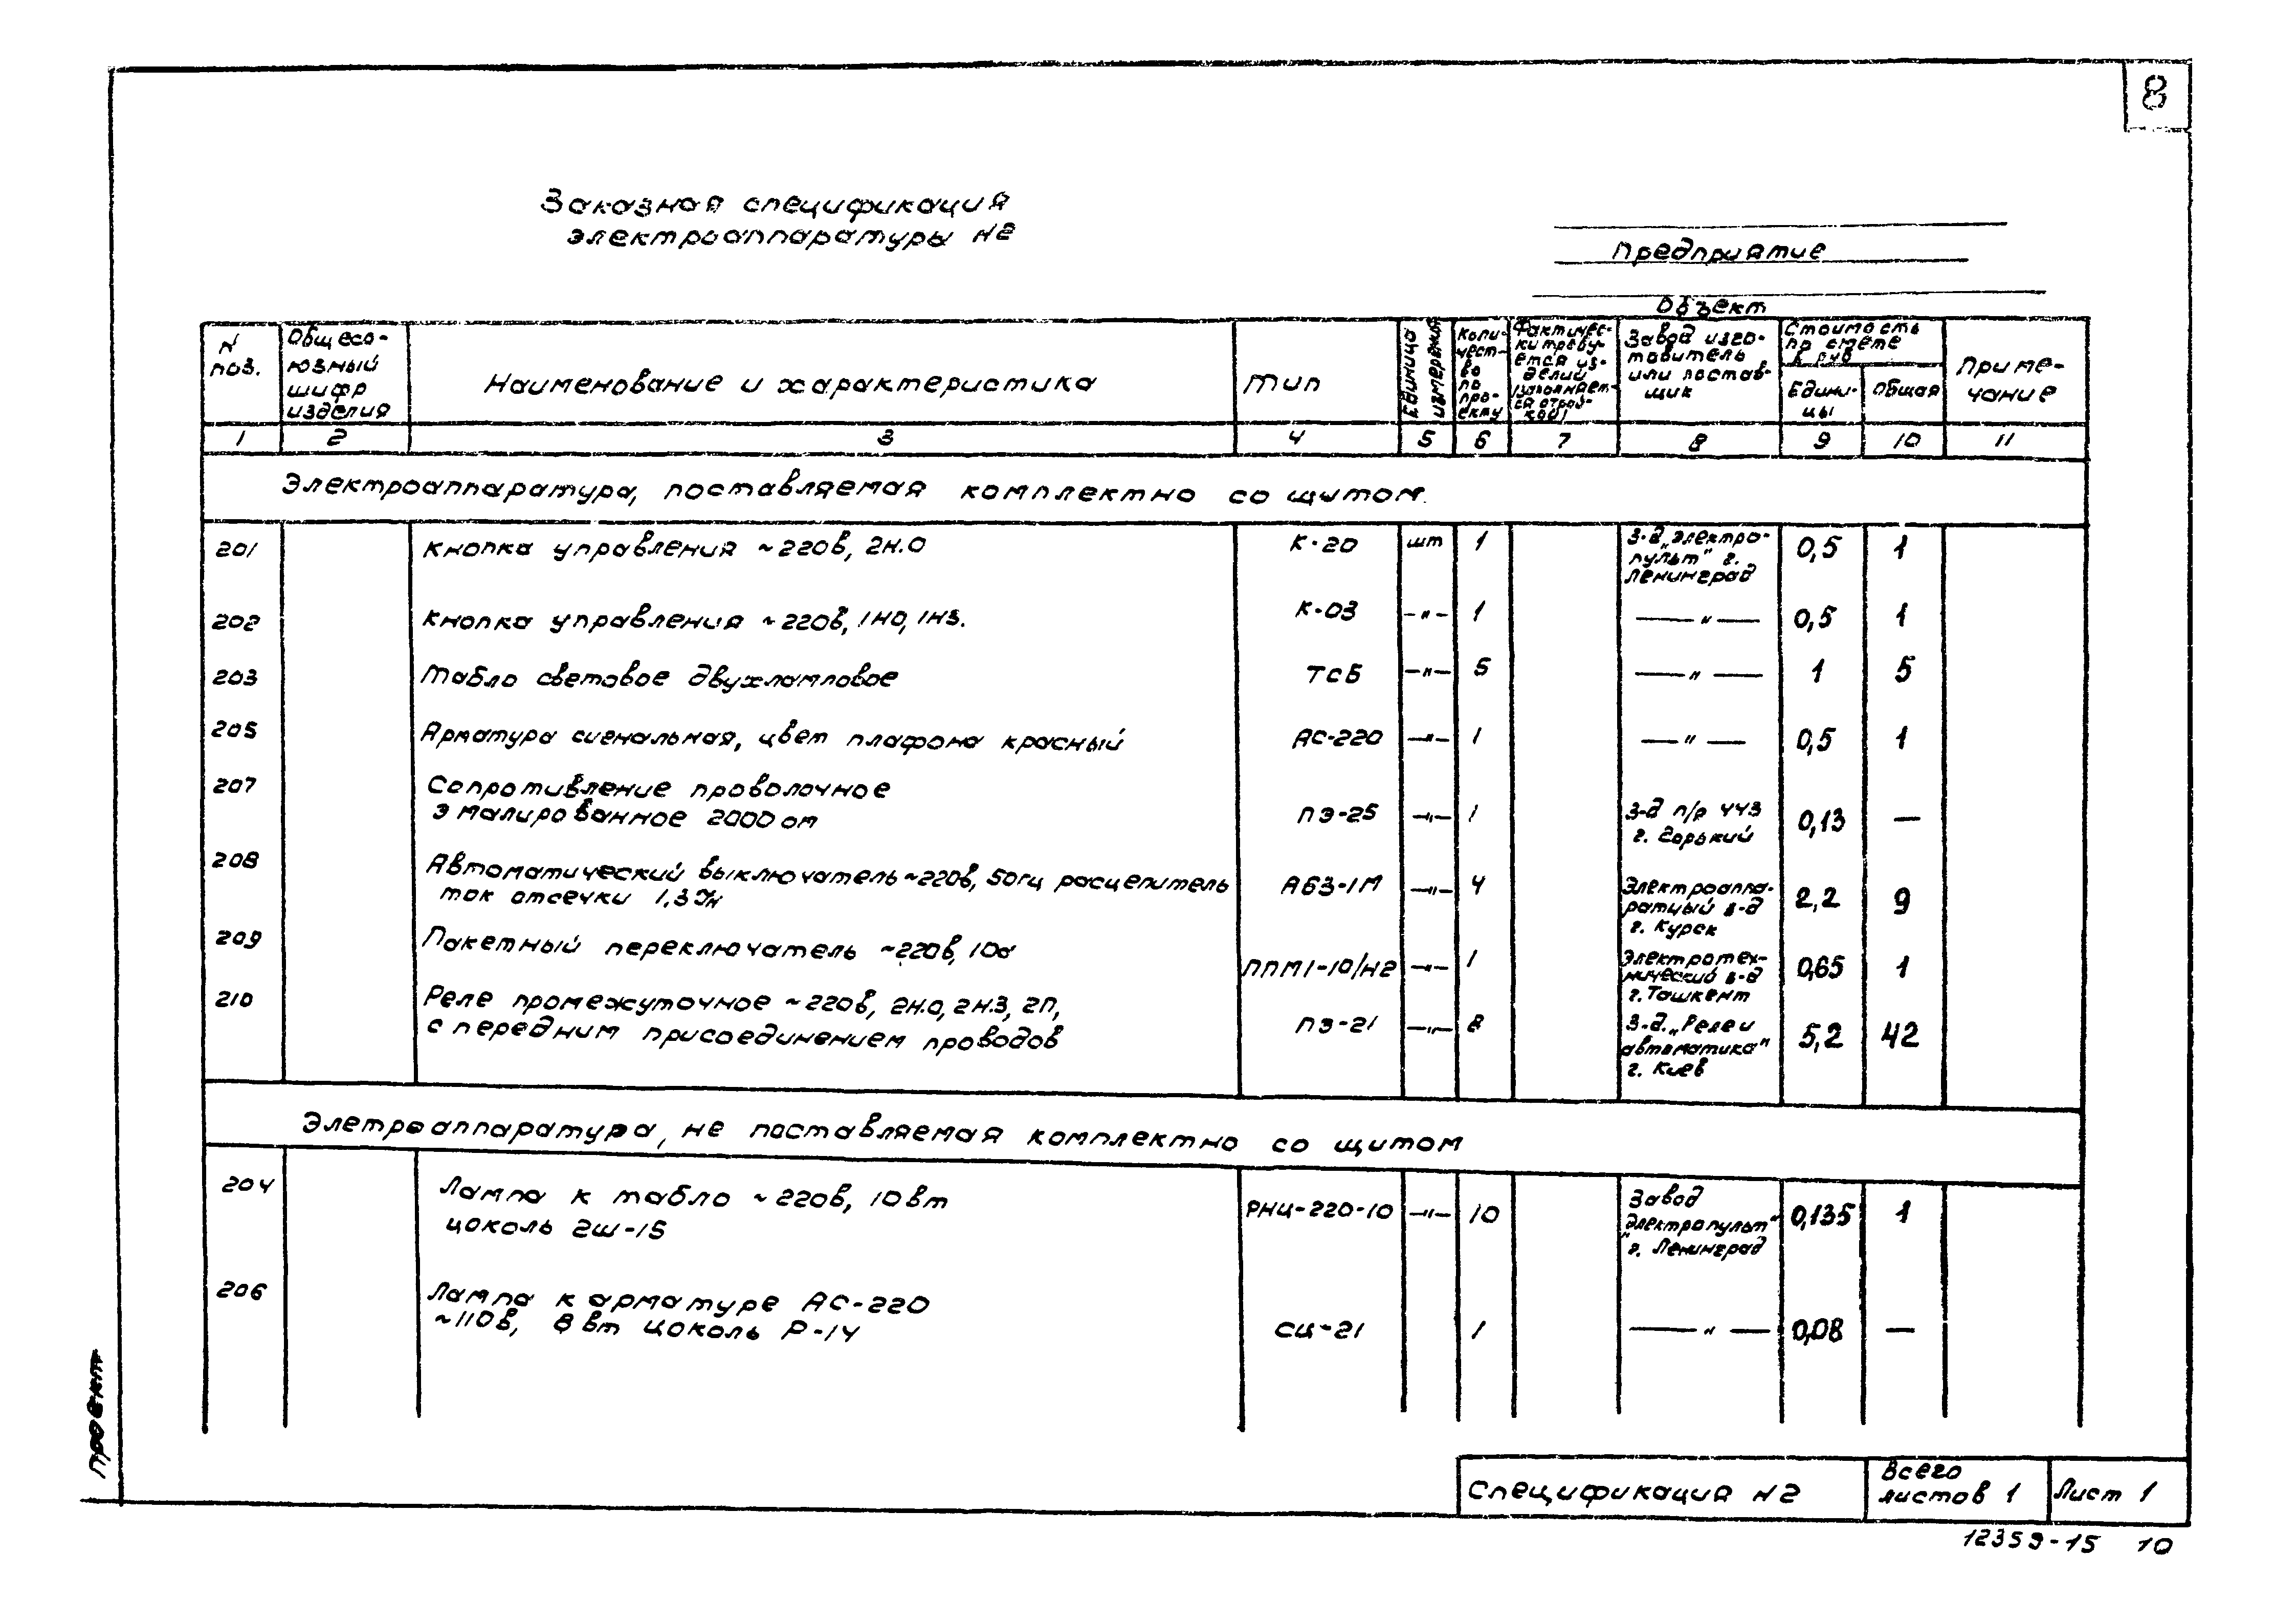 8
Заказная спецификация
электроаппаратуры N2
Предприятие
Объект
N поз.
Общесоюзный шифр изделия
Наименование и характеристика
Тип
Единица измерения
Количество по проекту
Фактически требуется изделий
Завод изготовитель или поставщик
Стоимость по смете в руб
Единицы
Общая
Примечание
1 2 3 4 5 6 7 8 9 10 11
Электроаппаратура, поставляемая комплектно со щитом.
201 Кнопка управления ~220в, 2н.о К-20 шт 1 З-д „Электро- 0,5 1
пульт" г.
Ленинград
202 Кнопка управления ~220в, 1но, 1нз. К-03 —"— 1 —"— 0,5 1
203 Табло световое двухламповое ТСБ —"— 5 —"— 1 5
205 Арматура сигнальная, цвет плафона красный АС-220 —"— 1 —"— 0,5 1
207 Сопротивление проволочное
эмалированное 2000 ом ПЭ-25 —"— 1 З-д п/р ЧЧЗ 0,13 —
г. Горький
208 Автоматический выключатель ~220в, 50гц расцепитель А63-1М —"— 4 Электроаппа- 2,2 9
ток отсечки 1,3 Jн ратный з-д
г. Курск
209 Пакетный переключатель ~220в, 10а ППМ1-10/Н2 —"— 1 Электротех- 0,65 1
нический з-д
г. Ташкент
210 Реле промежуточное ~220в, 2н.о, 2н.з, 2п,
с передним присоединением проводов ПЭ-21 —"— 8 З-д. „Реле и 5,2 42
автоматика"
г. Киев
Элетроаппаратура, не поставляемая комплектно со щитом
204 Лампа к табло ~220в, 10вт РНЦ-220-10 —"— 10 Завод 0,135 1
цоколь 2ш-15 "Электропульт"
г. Ленинград
206 Лампа к арматуре АС-220
~110в, 8вт цоколь Р-14 СЦ-21 1 —"— 0,08 —
Проект
Спецификация N2
Всего
листов 1
Лист 1
12359-15 10